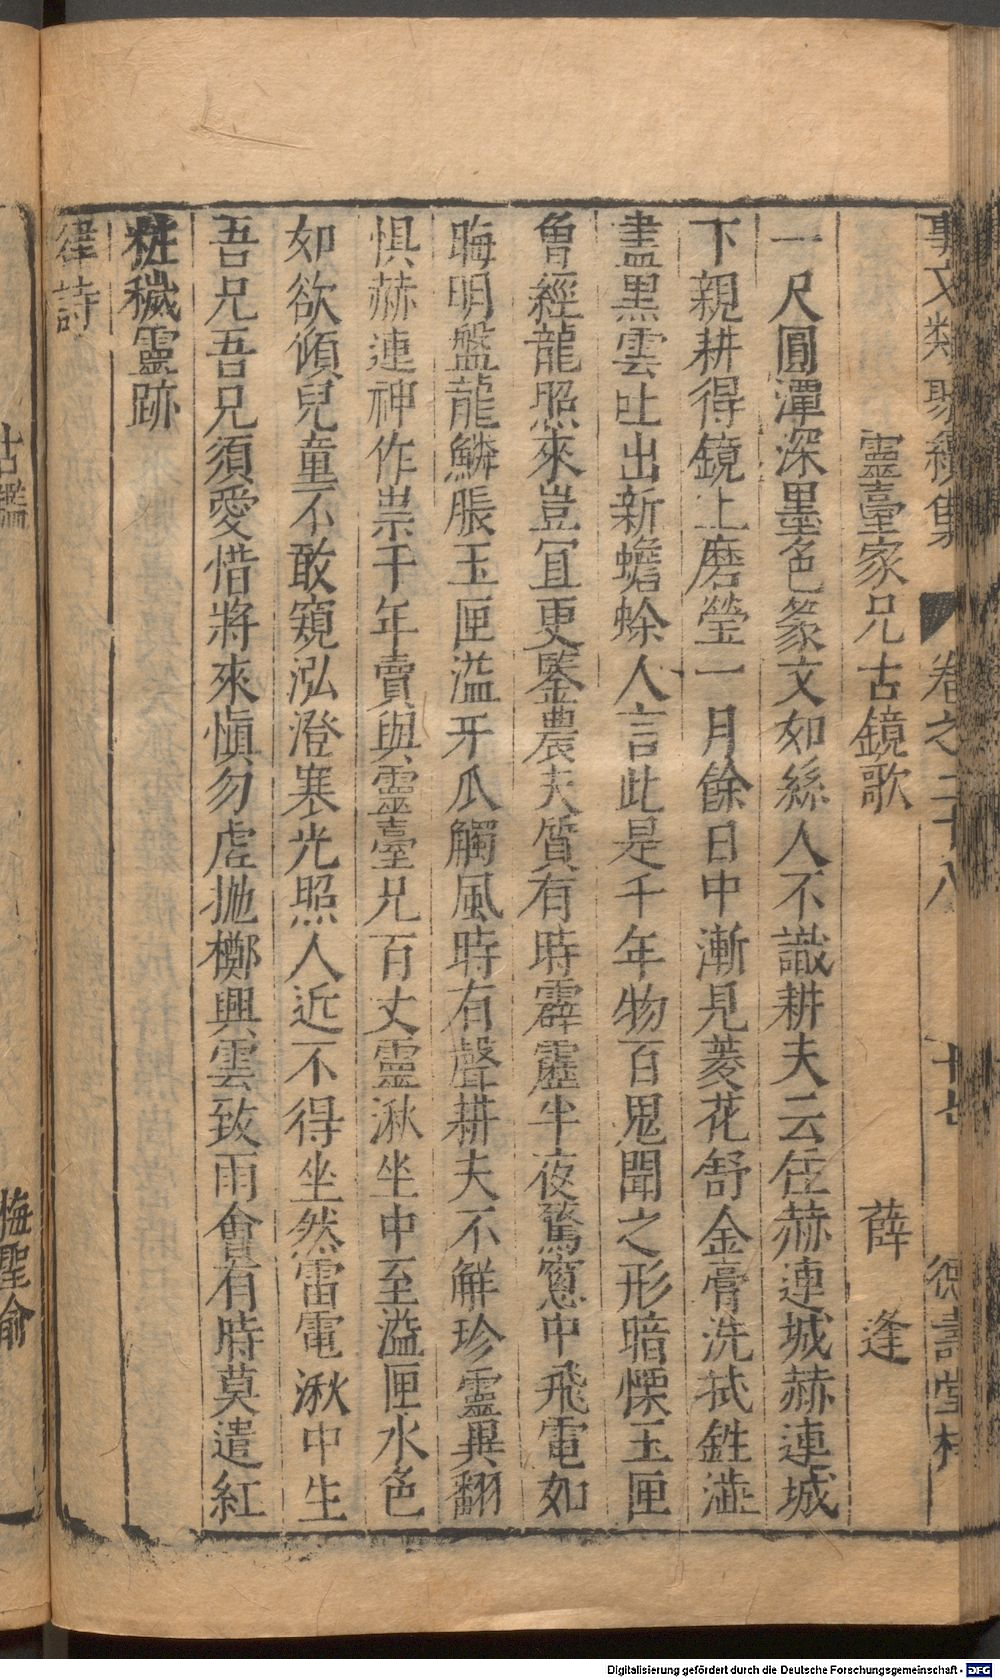 事文類聚續集 卷之二十八 十七 德壽堂梓
靈臺家兄古鏡歌 薛逢
一尺圓潭深墨色篆文如絲人不識耕夫云住赫連城赫連城
下親耕得鏡上磨瑩一月餘日中漸見菱花舒金膏洗拭鉎澁
盡黑雲吐出新蟾蜍人言此是千年物百鬼聞之形暗慄玉匣
曾經龍照來豈宜更鑒農夫質有時霹靂半夜驚窻中飛電如
晦明盤龍鱗脹玉匣溢牙爪觸風時有聲耕夫不解珍靈異翻
惧赫連神作祟千年賣與靈臺兄百丈靈湫坐中至溢匣水色
如欲傾兒童不敢窺泓澄寒光照人近不得坐然雷電湫中生
吾兄吾兄須愛惜將來愼勿虛抛擲興雲致雨會有時莫遣紅
粧穢靈跡
律詩
古鑑 梅聖俞
Digitalisierung gefördert durch die Deutsche Forschungsgemeinschaft - DFG